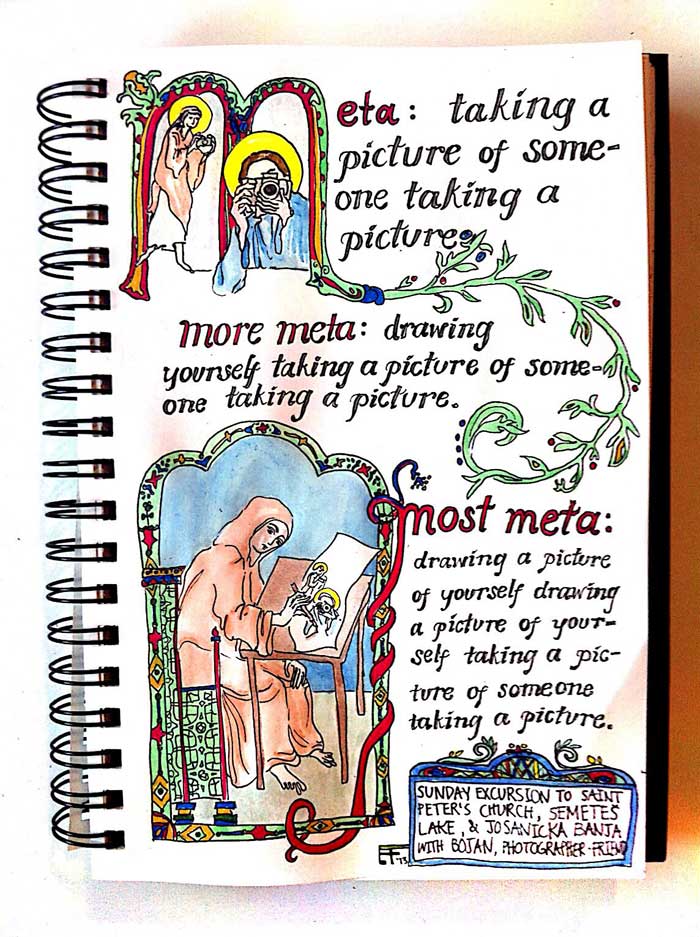 Meta: taking a
picture of some-
one taking a
picture.
more meta: drawing
yourself taking a picture of some-
one taking a picture.
most meta:
drawing a picture
of yourself drawing
a picture of your-
self taking a pic-
ture of someone
taking a picture.
SUNDAY EXCURSION TO SAINT
PETER'S CHURCH, SEMETES
LAKE, & JOSANICKA BANJA
WITH BOJAN, PHOTOGRAPHER-FRIEND